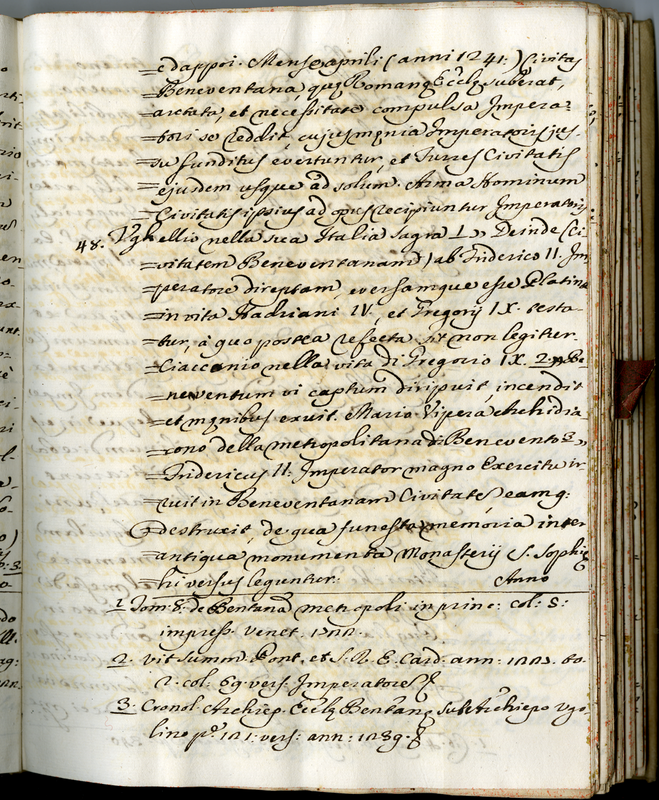 =e dappoi. Mense aprili (anni 1241.) Civitas
=Beneventana, quę Romanę Ecclę suberat,
=arctata, et necessitate compulsa Impera=
=tori se reddit, cujus męnia Imperatoris jus=
=su funditus evertuntur, et Turres Civitatis
=ejusdem usque ad solum. Arma Hominum
=Civitatis ipsius ad opus recipiuntur Imperatoris
48. Ughellio nella sua Italia Sagra 1 „ Deinde (Ci=
=vitatem Beneventanam) ab Friderico II. Im
=peratore direptam, eversamque esse Platina
=in vita Hadriani IV. et Gregorij IX. testa=
=tur, a quo postea refecta sit non legitur.
=Ciacconio nella vita di Gregorio IX. 2 „ Be=
=neventum vi captum diripuit, incendit
=et męnibus exuit. Mario Vipera Archidia
=cono della metropolitana di Benevento 3 „
=Fridericus II. Imperator magno Exercitu ir
=ruit in Beneventanam Civitatẽ, eamq:
destruxit, de qua funesta memoria inter
=antiqua monumenta Monasterij S. Sophię
=hi versus leguntur: Anno
1 Tom: 8: de Bentana metropoli in princ: col: 8:
impress: Venet.
2. vit: Summ: Pont. et S. R. E. Card. ann: to.
2. col: 69 vers: Imperatores
3. Cronol: Archiep. Ecclę Bentanę sub Archiepo Ugo=
lino po: vers: ann: